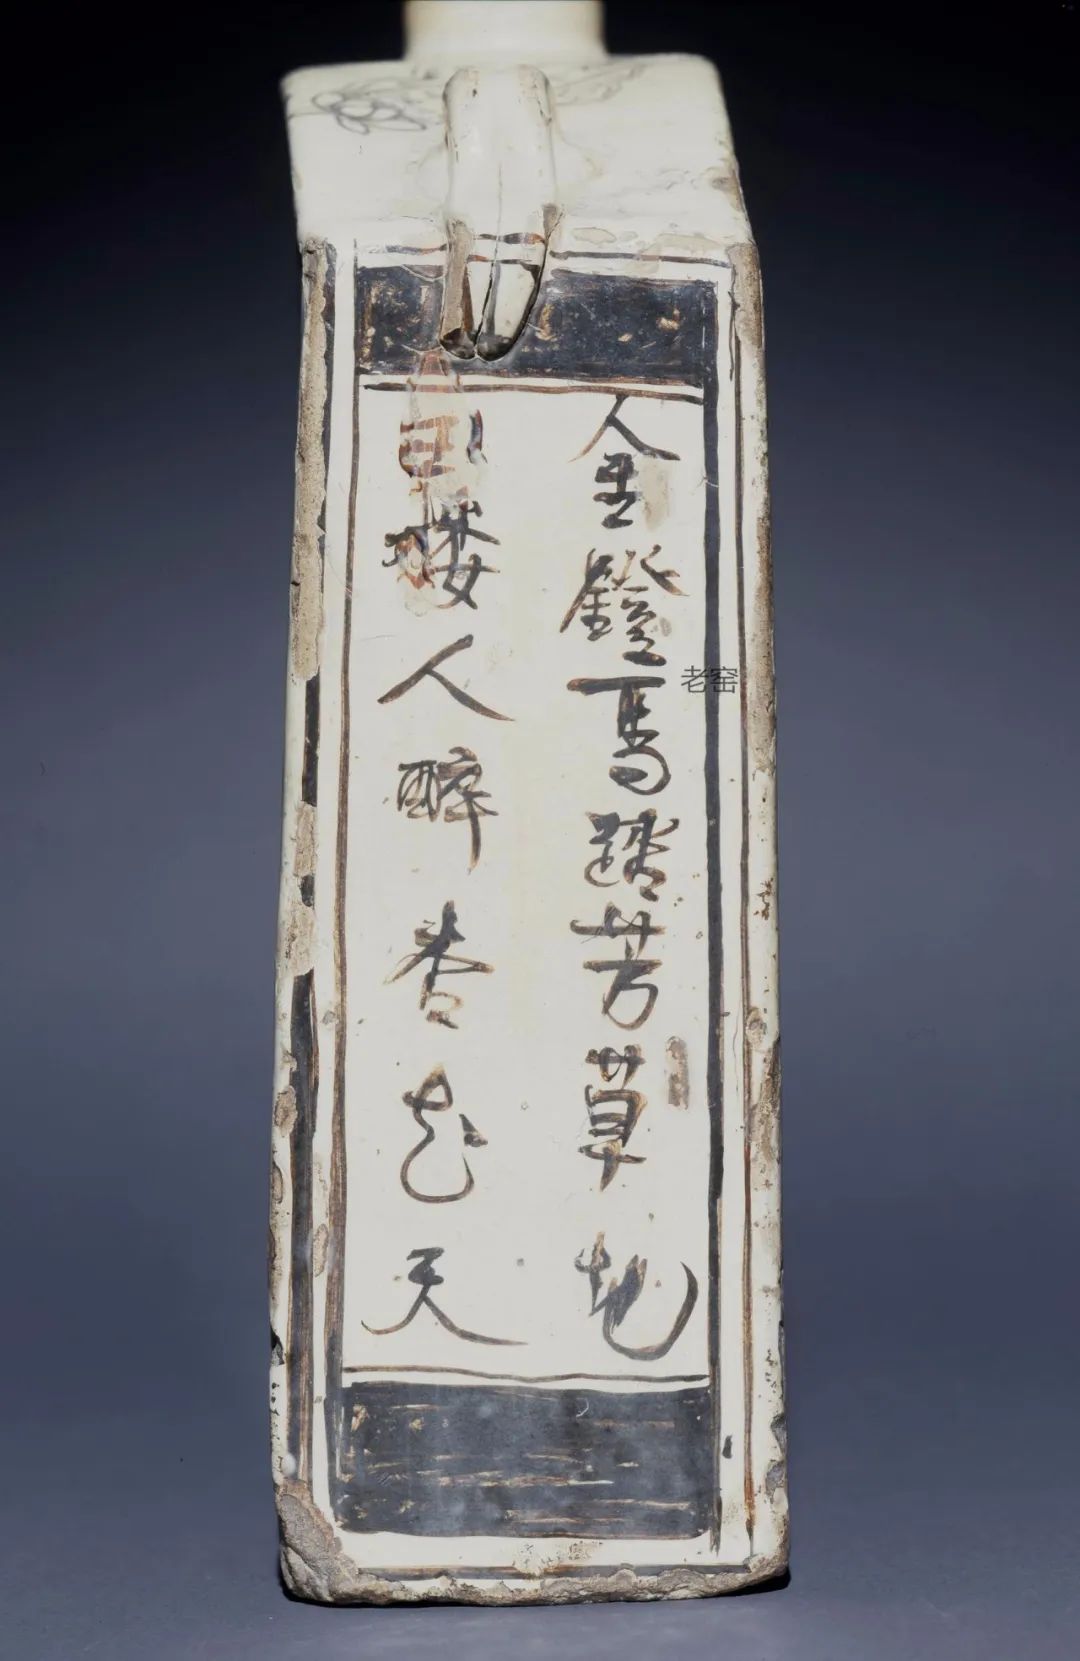 金鐙馬踏芳草地
楼人醉杏花天
老窑